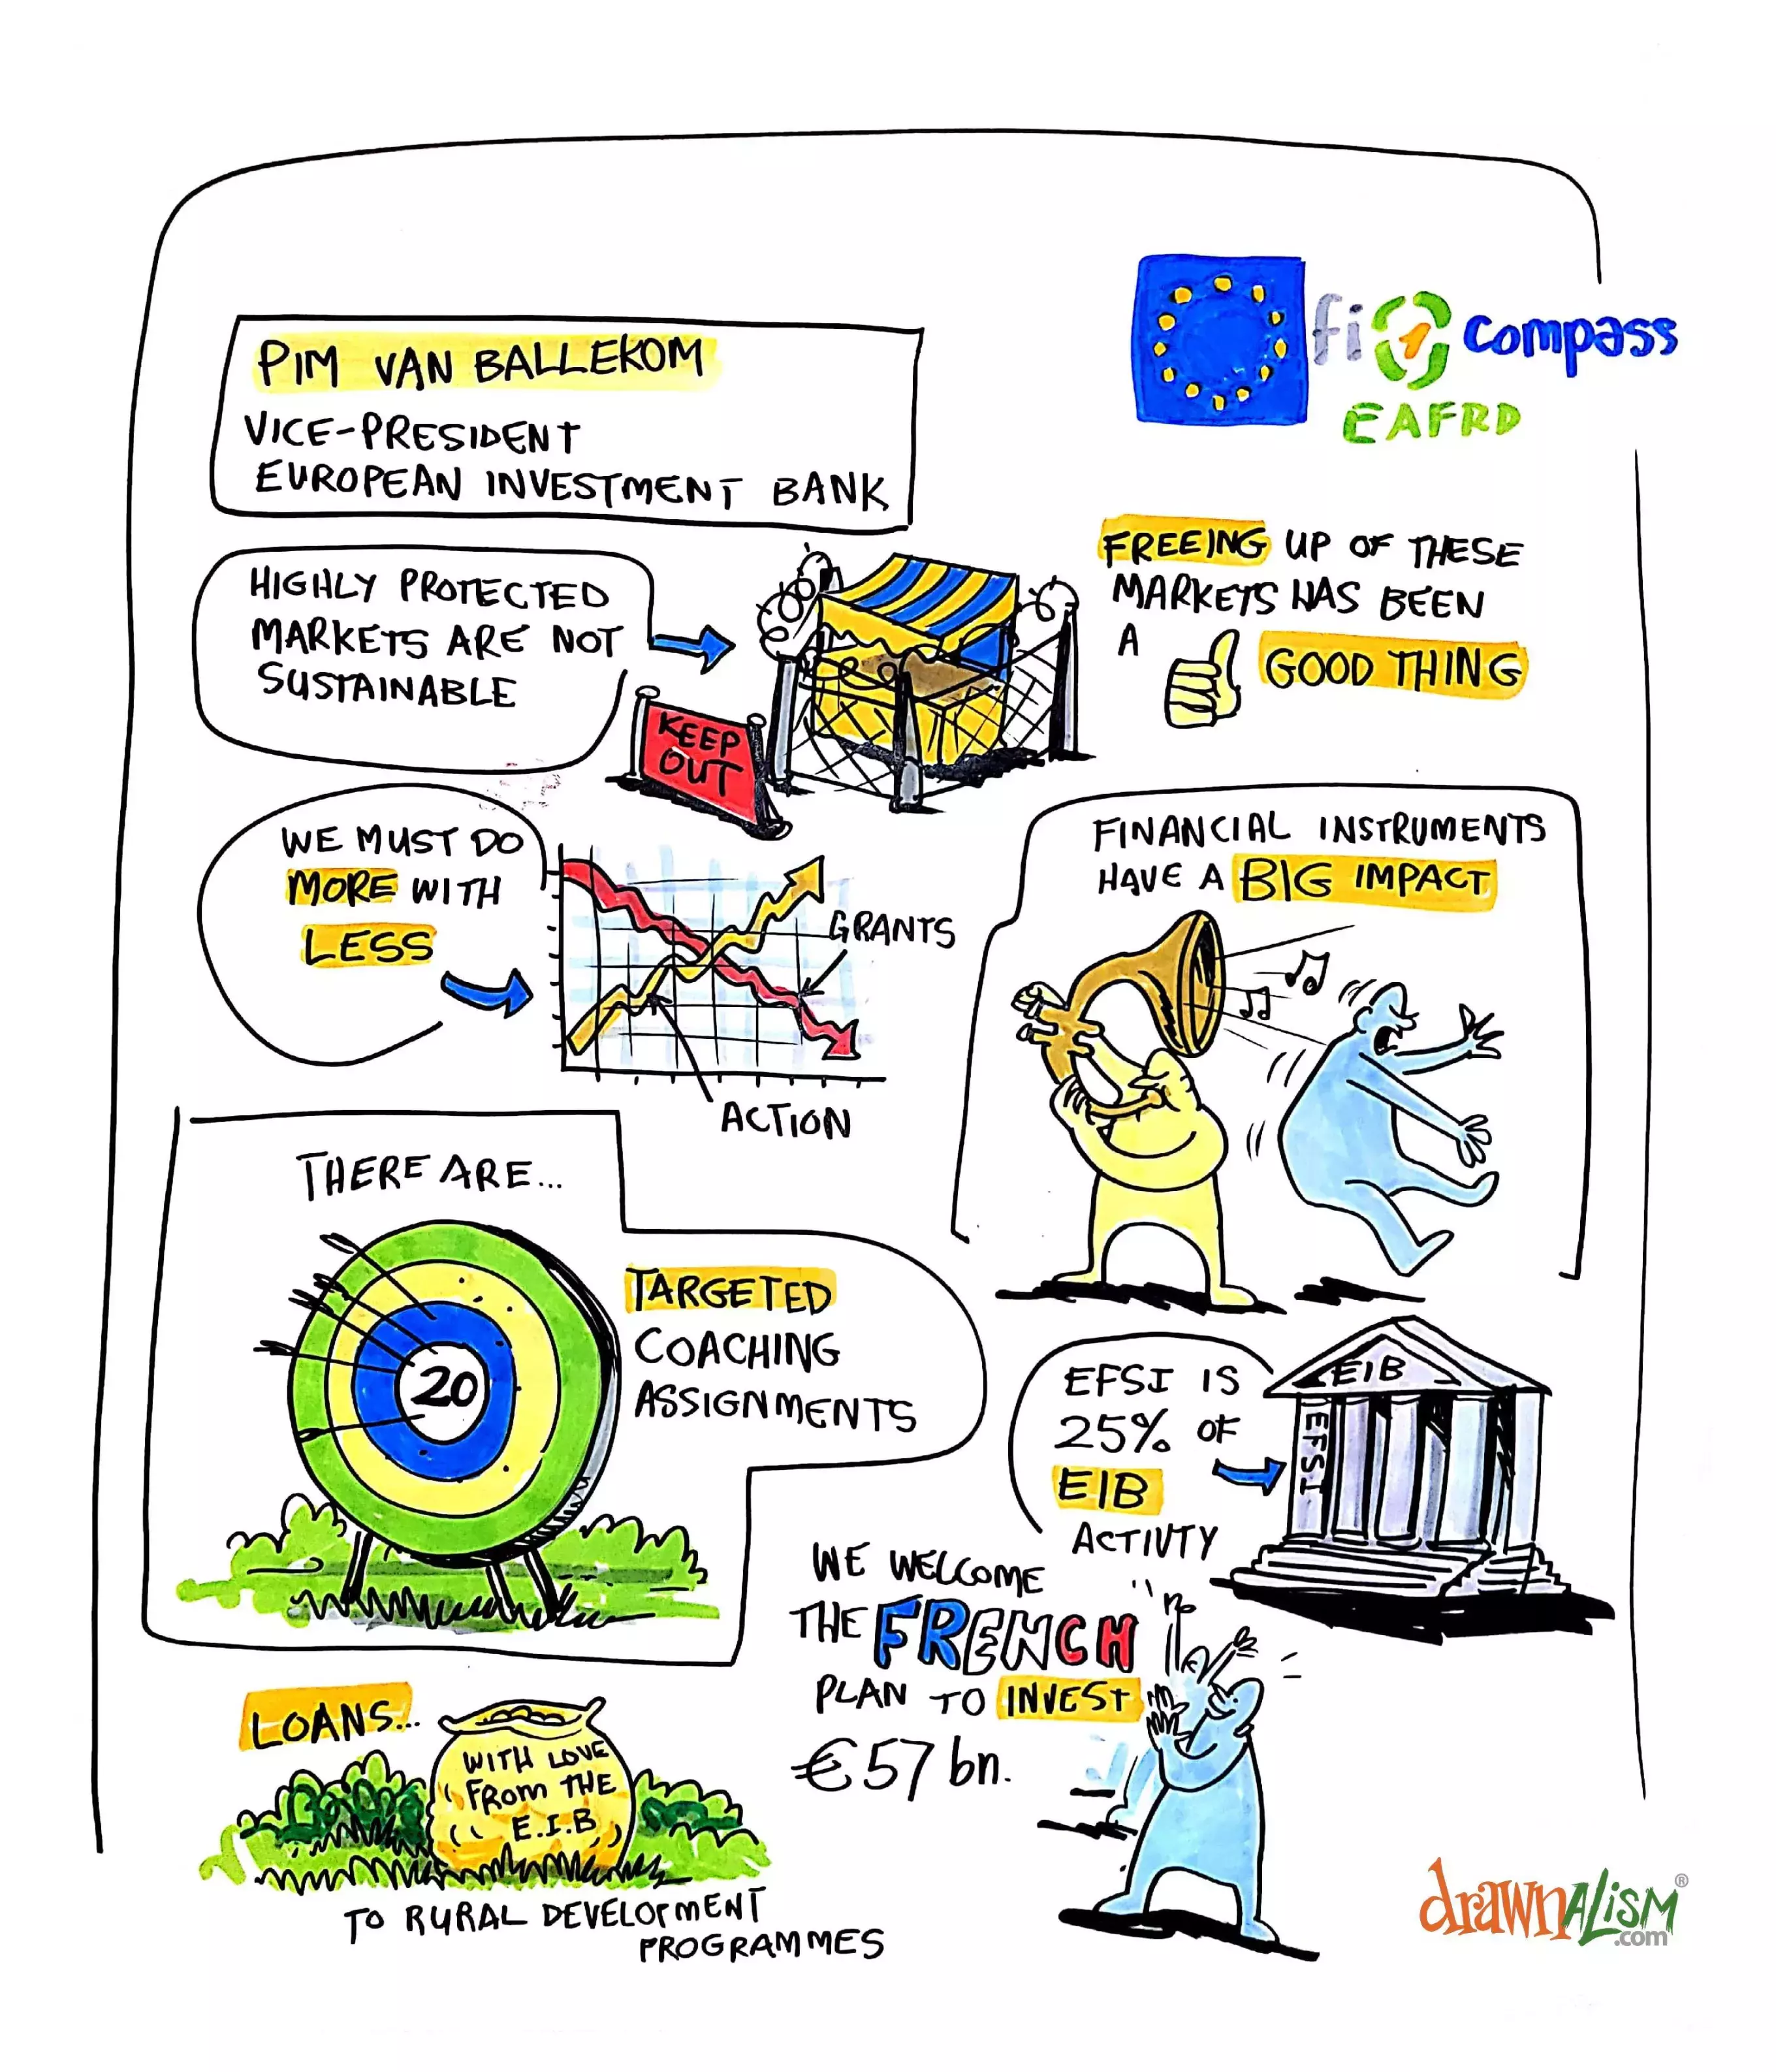 PIM VAN BALLEKOM
VICE-PRESIDENT
EUROPEAN INVESTMENT BANK
fi compass
EAFRD
HIGHLY PROTECTED
MARKETS ARE NOT
SUSTAINABLE
KEEP
OUT
FREEING UP OF THESE
MARKETS HAS BEEN
A GOOD THING
WE MUST DO
MORE WITH
LESS
GRANTS
ACTION
FINANCIAL INSTRUMENTS
HAVE A BIG IMPACT
THERE ARE...
20
TARGETED
COACHING
ASSIGNMENTS
EFSI IS
25% OF
EIB
ACTIVTY
EIB
EFSI
WE WELCOME
THE FRENCH
PLAN TO INVEST
€57 bn.
LOANS...
WITH LOVE
FROM THE
E.I.B
TO RURAL DEVELOPMENT
PROGRAMMES
drawnALISM®
.com